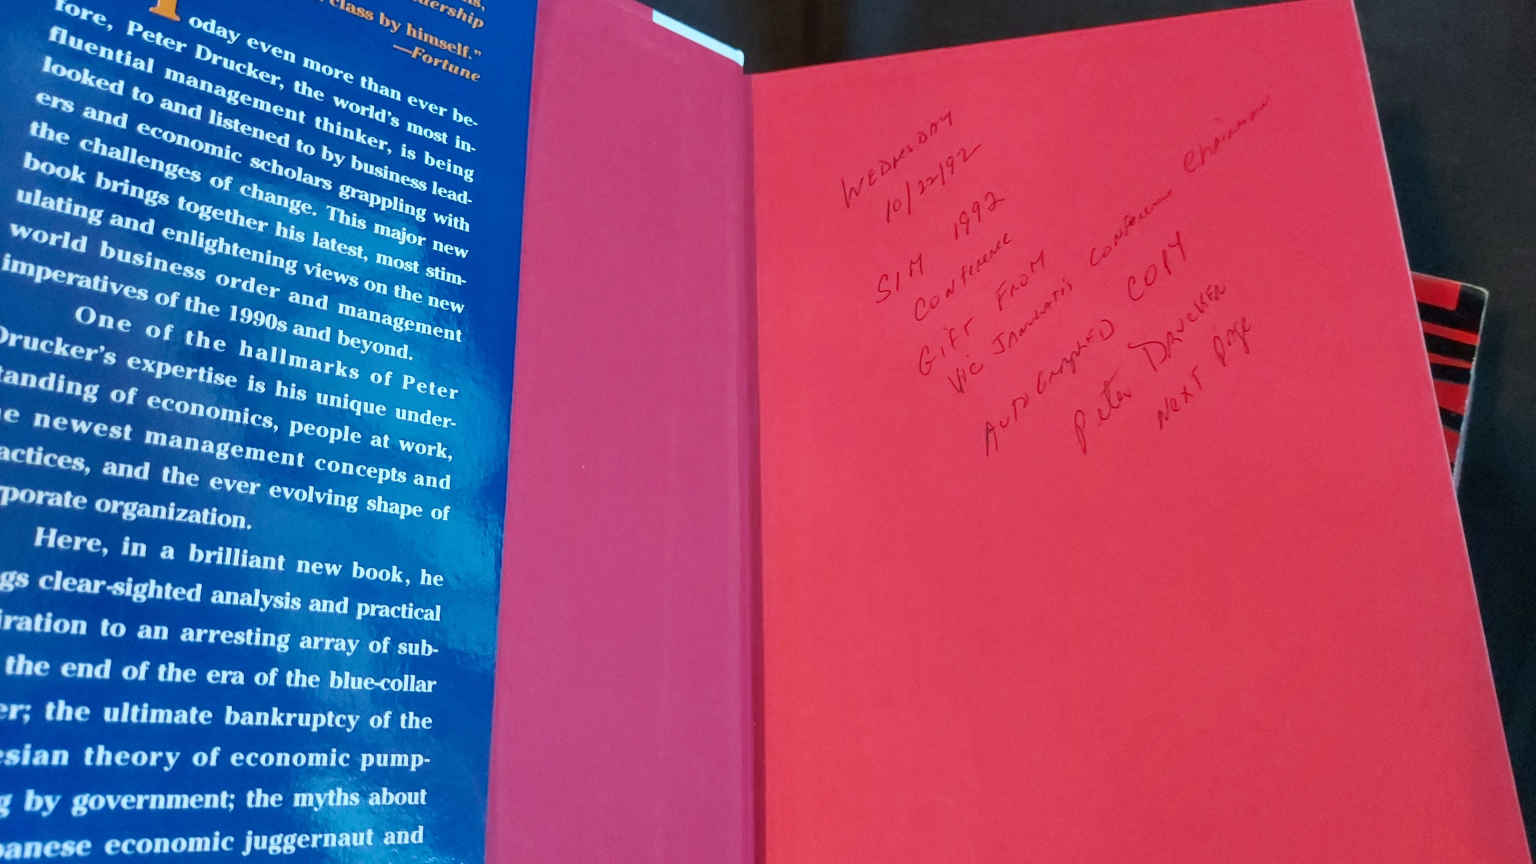 dership
class by himself."
—Fortune
Today even more than ever be-
fore, Peter Drucker, the world's most in-
fluential management thinker, is being
looked to and listened to by business lead-
ers and economic scholars grappling with
the challenges of change. This major new
book brings together his latest, most stim-
ulating and enlightening views on the new
world business order and management
imperatives of the 1990s and beyond.
One of the hallmarks of Peter
Drucker's expertise is his unique under-
tanding of economics, people at work,
e newest management concepts and
actices, and the ever evolving shape of
porate organization.
Here, in a brilliant new book, he
gs clear-sighted analysis and practical
iration to an arresting array of sub-
the end of the era of the blue-collar
er; the ultimate bankruptcy of the
esian theory of economic pump-
g by government; the myths about
panese economic juggernaut and
WEDNESDAY
10/22/92
1992
SIM
Conference
GIFT FROM
Vic Conference Chairman
AUTOGRAPHED COPY
Peter DRUCKER
Next Page